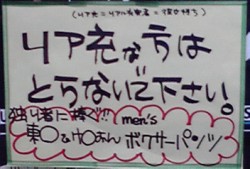 (リア充=リアル充実者=彼女持ち)
リア充な方は
とらないで下さい。
独り者に捧ぐ!!
men's
東〇&ゆ〇あん ボクサーパンツ